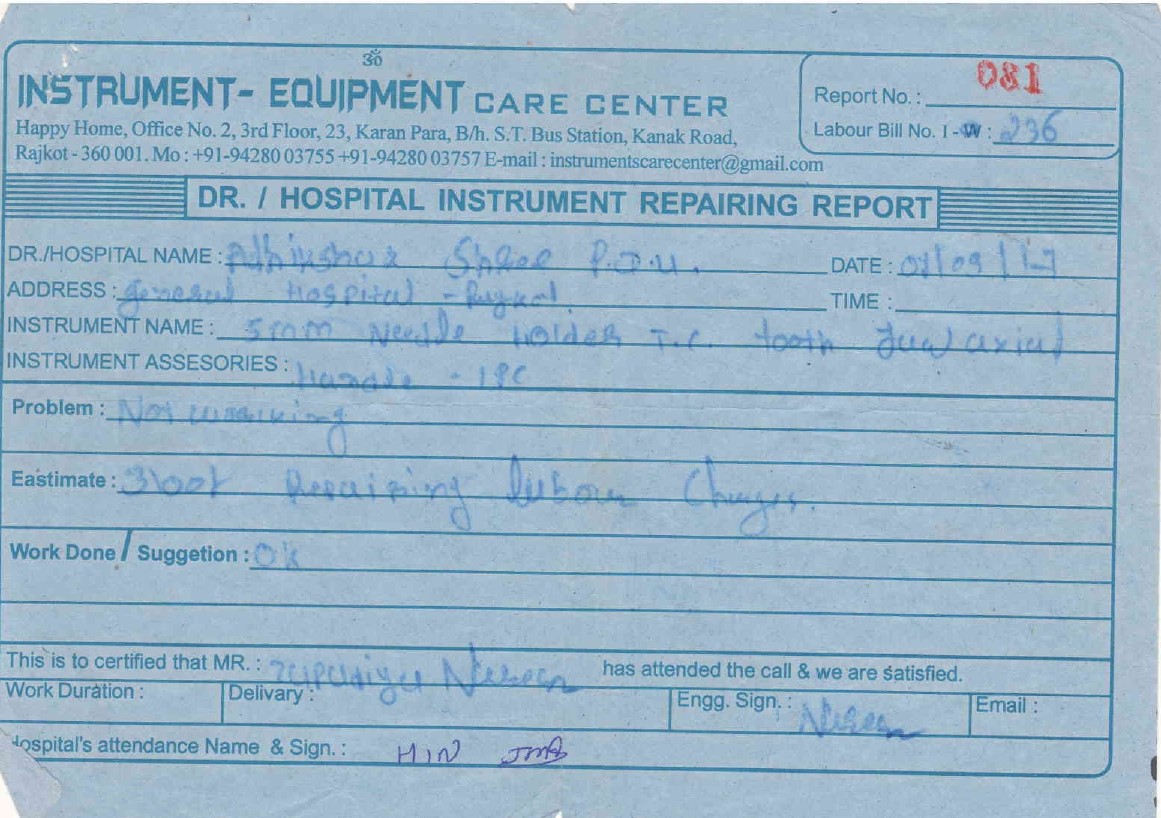 ॐ
INSTRUMENT- EQUIPMENT CARE CENTER
Happy Home, Office No. 2, 3rd Floor, 23, Karan Para, B/h. S.T. Bus Station, Kanak Road,
Rajkot - 360 001. Mo : +91-94280 03755 +91-94280 03757 E-mail : instrumentscarecenter@gmail.com
Report No. : 081
Labour Bill No. I - W : 236
DR. / HOSPITAL INSTRUMENT REPAIRING REPORT
DR./HOSPITAL NAME : Shree P.D.U. DATE :
ADDRESS : General Hospital - TIME :
INSTRUMENT NAME : 5mm Needle Holder T.C. tooth
INSTRUMENT ASSESORIES : Handle -
Problem : Not working
Eastimate : Repairing labour Charges.
Work Done / Suggetion : OK
This is to certified that MR. : has attended the call & we are satisfied.
Work Duration : Delivary : Engg. Sign. : Email :
Hospital's attendance Name & Sign. :